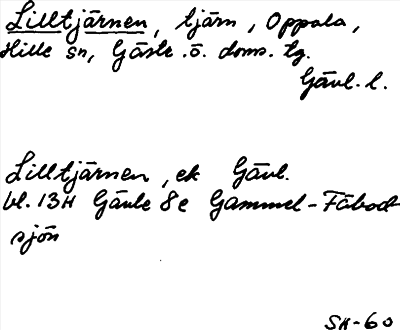 Lilltjärnen, tjärn, Oppala,
Hille sn, Gästr. ö. doms. tg.
Gävl. l.
Lilltjärnen, ek Gävl.
bl. 13H Gävle 8e Gammel-Fäbod-
sjön
SK-60